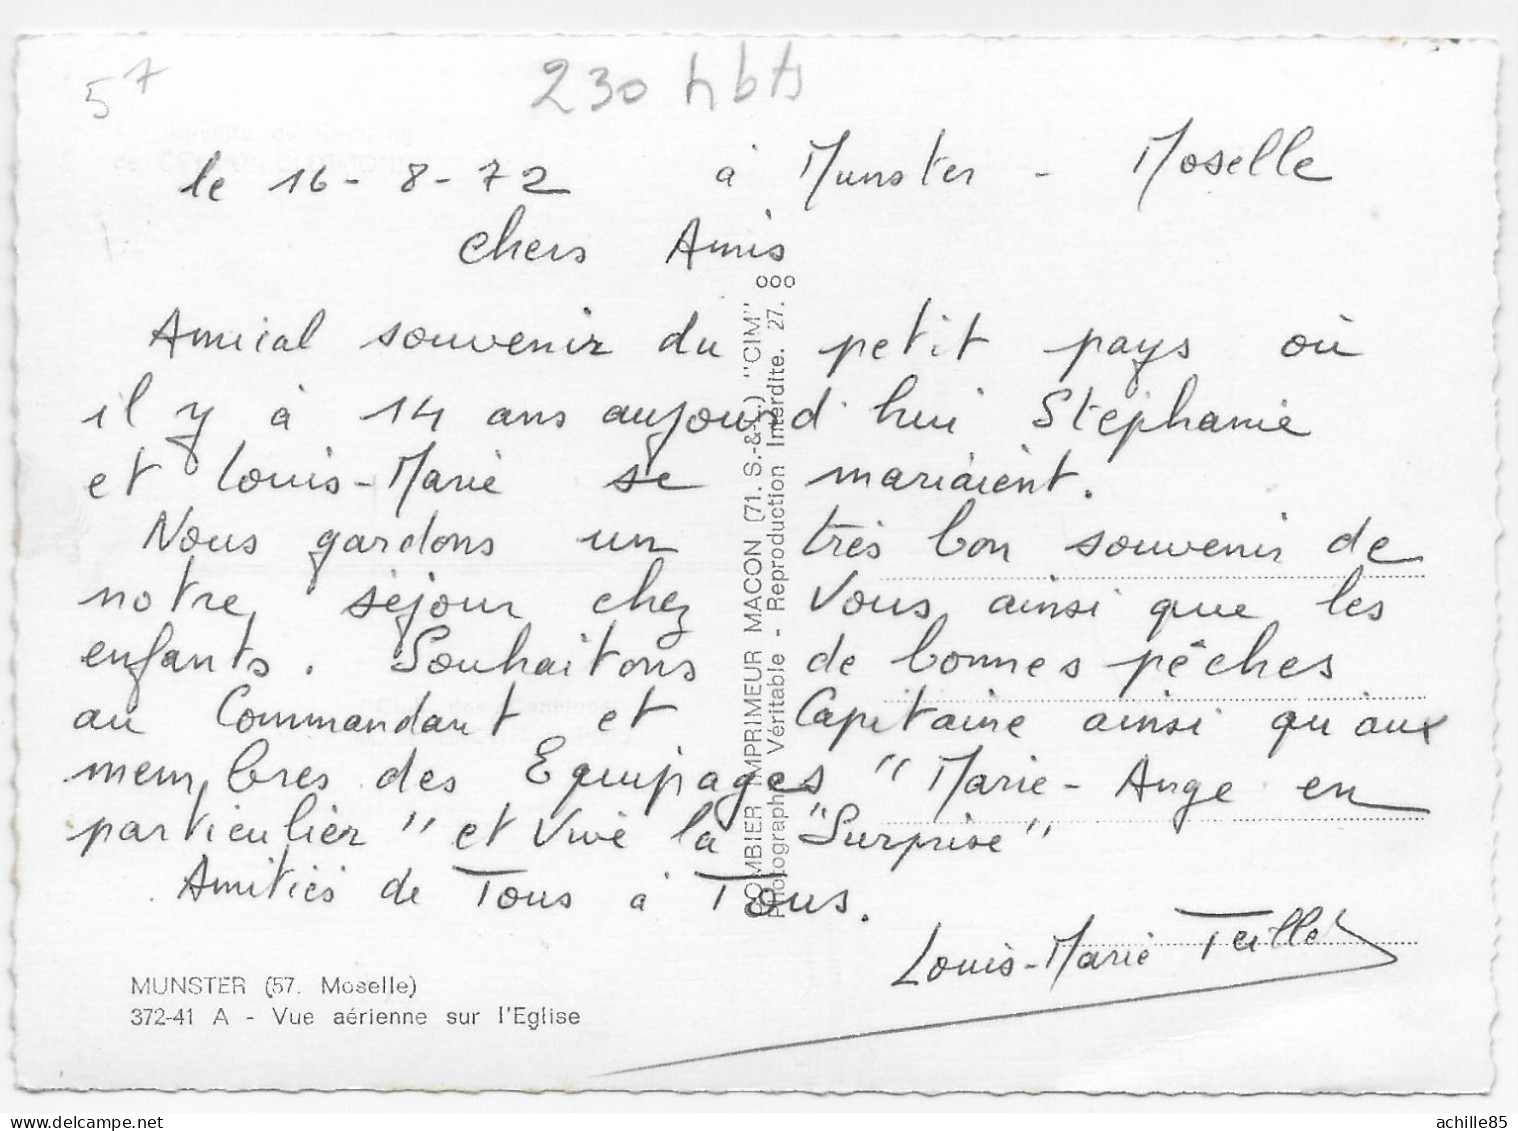 57
230 hbts
le 16-8-72 à Munster - Moselle
chers Amis
Amical souvenir du petit pays où
il y à 14 ans aujourd'hui Stéphanie
et Louis-Marie se mariaient.
Nous gardons un très bon souvenir de
notre séjour chez Vous, ainsi que les
enfants. Souhaitons de bonnes pêches
au Commandant et Capitaine ainsi qu'aux
membres des Equipages "Marie-Ange en
particulier" et Vive la "Surprise"
Amitiés de Tous à Tous.
Louis-Marie
MUNSTER (57. Moselle)
372-41 A - Vue aérienne sur l'Eglise
COMBIER IMPRIMEUR MACON (71. S.-&-L.) "CIM"
Photographie Véritable - Reproduction Interdite. 27.
achille85